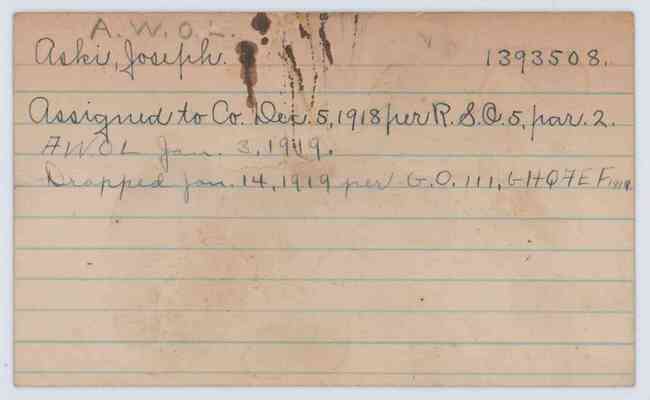 A.W.O.L.
Aski, Joseph. 1393508.
Assigned to Co. Dec. 5, 1918 per R.S.O. 5, par. 2.
AWOL Jan. 3, 1919.
Dropped Jan. 14, 1919 per G.O. 111, GHQAEF 1918.